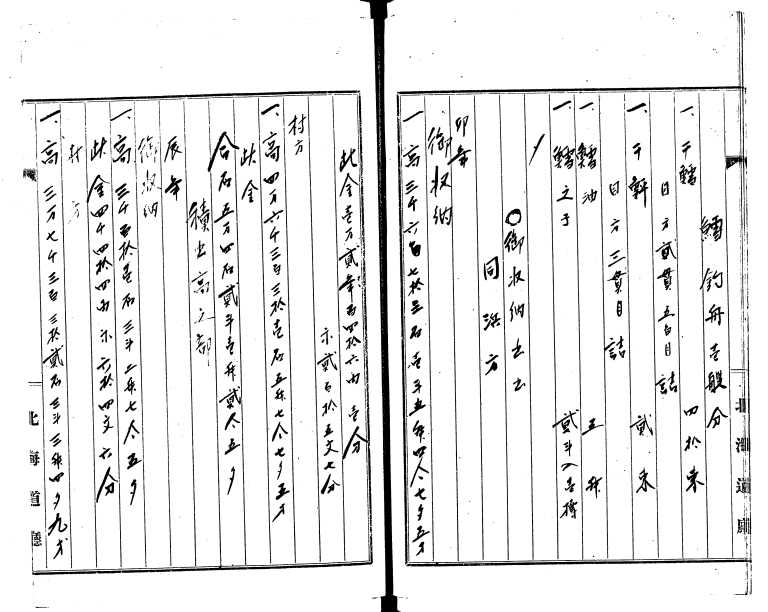 鱈釣舟壱艘分
一、干鱈 四拾束
目方貳貫五百目詰
一、干鮃 貳束
目方三貫目詰
一、鱈油 五升
一、鱈之子 貳斗入壱樽
〆
〇御収納出土
同浜方
卯年
御収納
一、高三千六百七拾三石壱斗五升四合七夕五才
北海道廳
此金壱万貳千百四拾六両壱分
永貳百拾五文七分
村方
一、高四万六千三百三拾壱石五升七合七夕五才
此金
合石五万四石貳斗壱升貳合五夕
積出高之部
辰年
御収納
一、高三千百拾壱石三斗二升七合五夕
此金四千四拾四両永六拾四文六分
村方
一、高三万七千三百三拾貳石三斗三升四夕九才
北海道廳